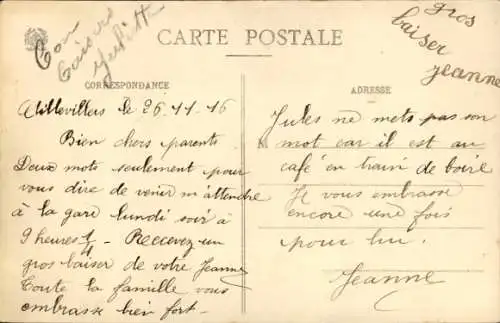 Bon
baisers
gros
baiser
Jeanne
CARTE POSTALE
CORRESPONDANCE
ADRESSE
Aillevillers le 26.11.16
Bien chers parents.
Deux mots seulement pour
vous dire de venir m'attendre
à la gare lundi soir à
9 heures 1/4 - Reccevez un
gros baiser de votre Jeanne
Toute la famille vous
embrasse bien fort.-
Jules ne mets pas son
mot car il est au
café en train de boire
Je vous embrasse
encore une fois
pour lui.
Jeanne